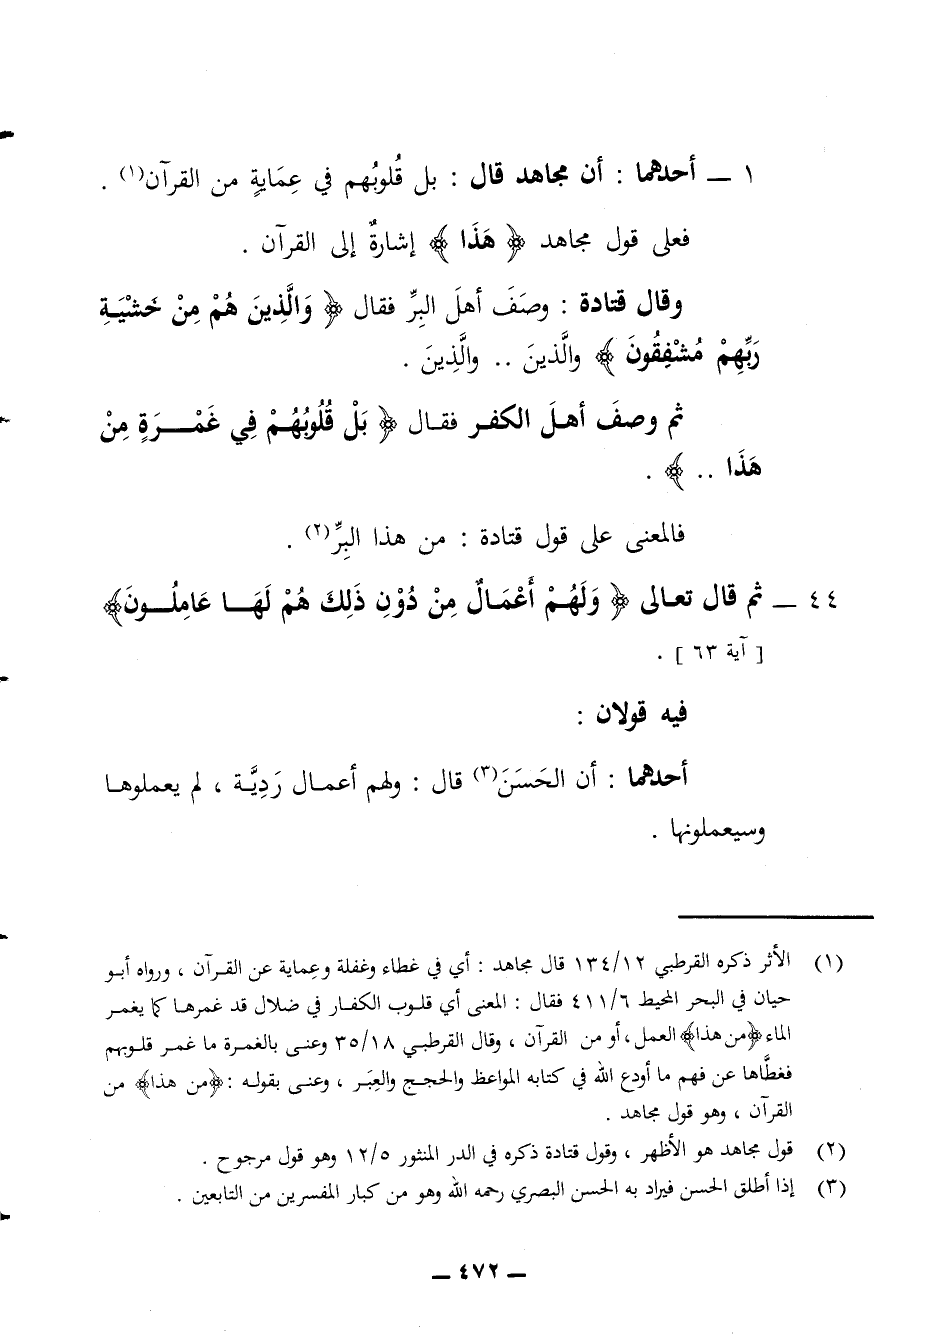 ١ ــ أحدهما : أن مجاهد قال : بل قُلوبُهم في عِمَايةٍ من القرآن(١) .
فعلى قول مجاهد ﴿ هَذَا ﴾ إشارةٌ إلى القرآن .
وقال قتادة : وصَفَ أهلَ البِرِّ فقال ﴿ وَالَّذِينَ هُمْ مِنْ خَشْيَةِ
رَبِّهِمْ مُشْفِقُونَ ﴾ والَّذينَ .. والَّذِينَ .
ثم وصفَ أهلَ الكفر فقال ﴿ بَلْ قُلُوبُهُمْ فِي غَمْرَةٍ مِنْ
هَذَا .. ﴾ .
فالمعنى على قول قتادة : من هذا البِرِّ(٢) .
٤٤ ــ ثم قال تعالى ﴿ وَلَهُمْ أَعْمَالٌ مِنْ دُوْنِ ذَلِكَ هُمْ لَهَا عَامِلُونَ﴾
[ آية ٦٣ ] .
فيه قولان :
أحدهما : أن الحَسَنَ(٣) قال : ولهم أعمال رَدِيَّة ، لم يعملوها
وسيعملونها .
(١) الأثر ذكره القرطبي ١٣٤/١٢ قال مجاهد : أي في غطاء وغفلة وعِماية عن القرآن ، ورواه أبو
حيان في البحر المحيط ٤١١/٦ فقال : المعنى أي قلوب الكفار في ضلال قد غمرها كما يغمر
الماء ﴿من هذا﴾ العمل ، أو من القرآن ، وقال القرطبي ٣٥/١٨ وعنى بالغمرة ما غمر قلوبهم
فغطَّاها عن فهم ما أودع الله في كتابه المواعظ والحجج والعِبَر ، وعنى بقوله : ﴿من هذا﴾ من
القرآن ، وهو قول مجاهد .
(٢) قول مجاهد هو الأظهر ، وقول قتادة ذكره في الدر المنثور ١٢/٥ وهو قول مرجوح .
(٣) إذا أطلق الحسن فيراد به الحسن البصري رحمه الله وهو من كبار المفسرين من التابعين .
ــ ٤٧٢ ــ